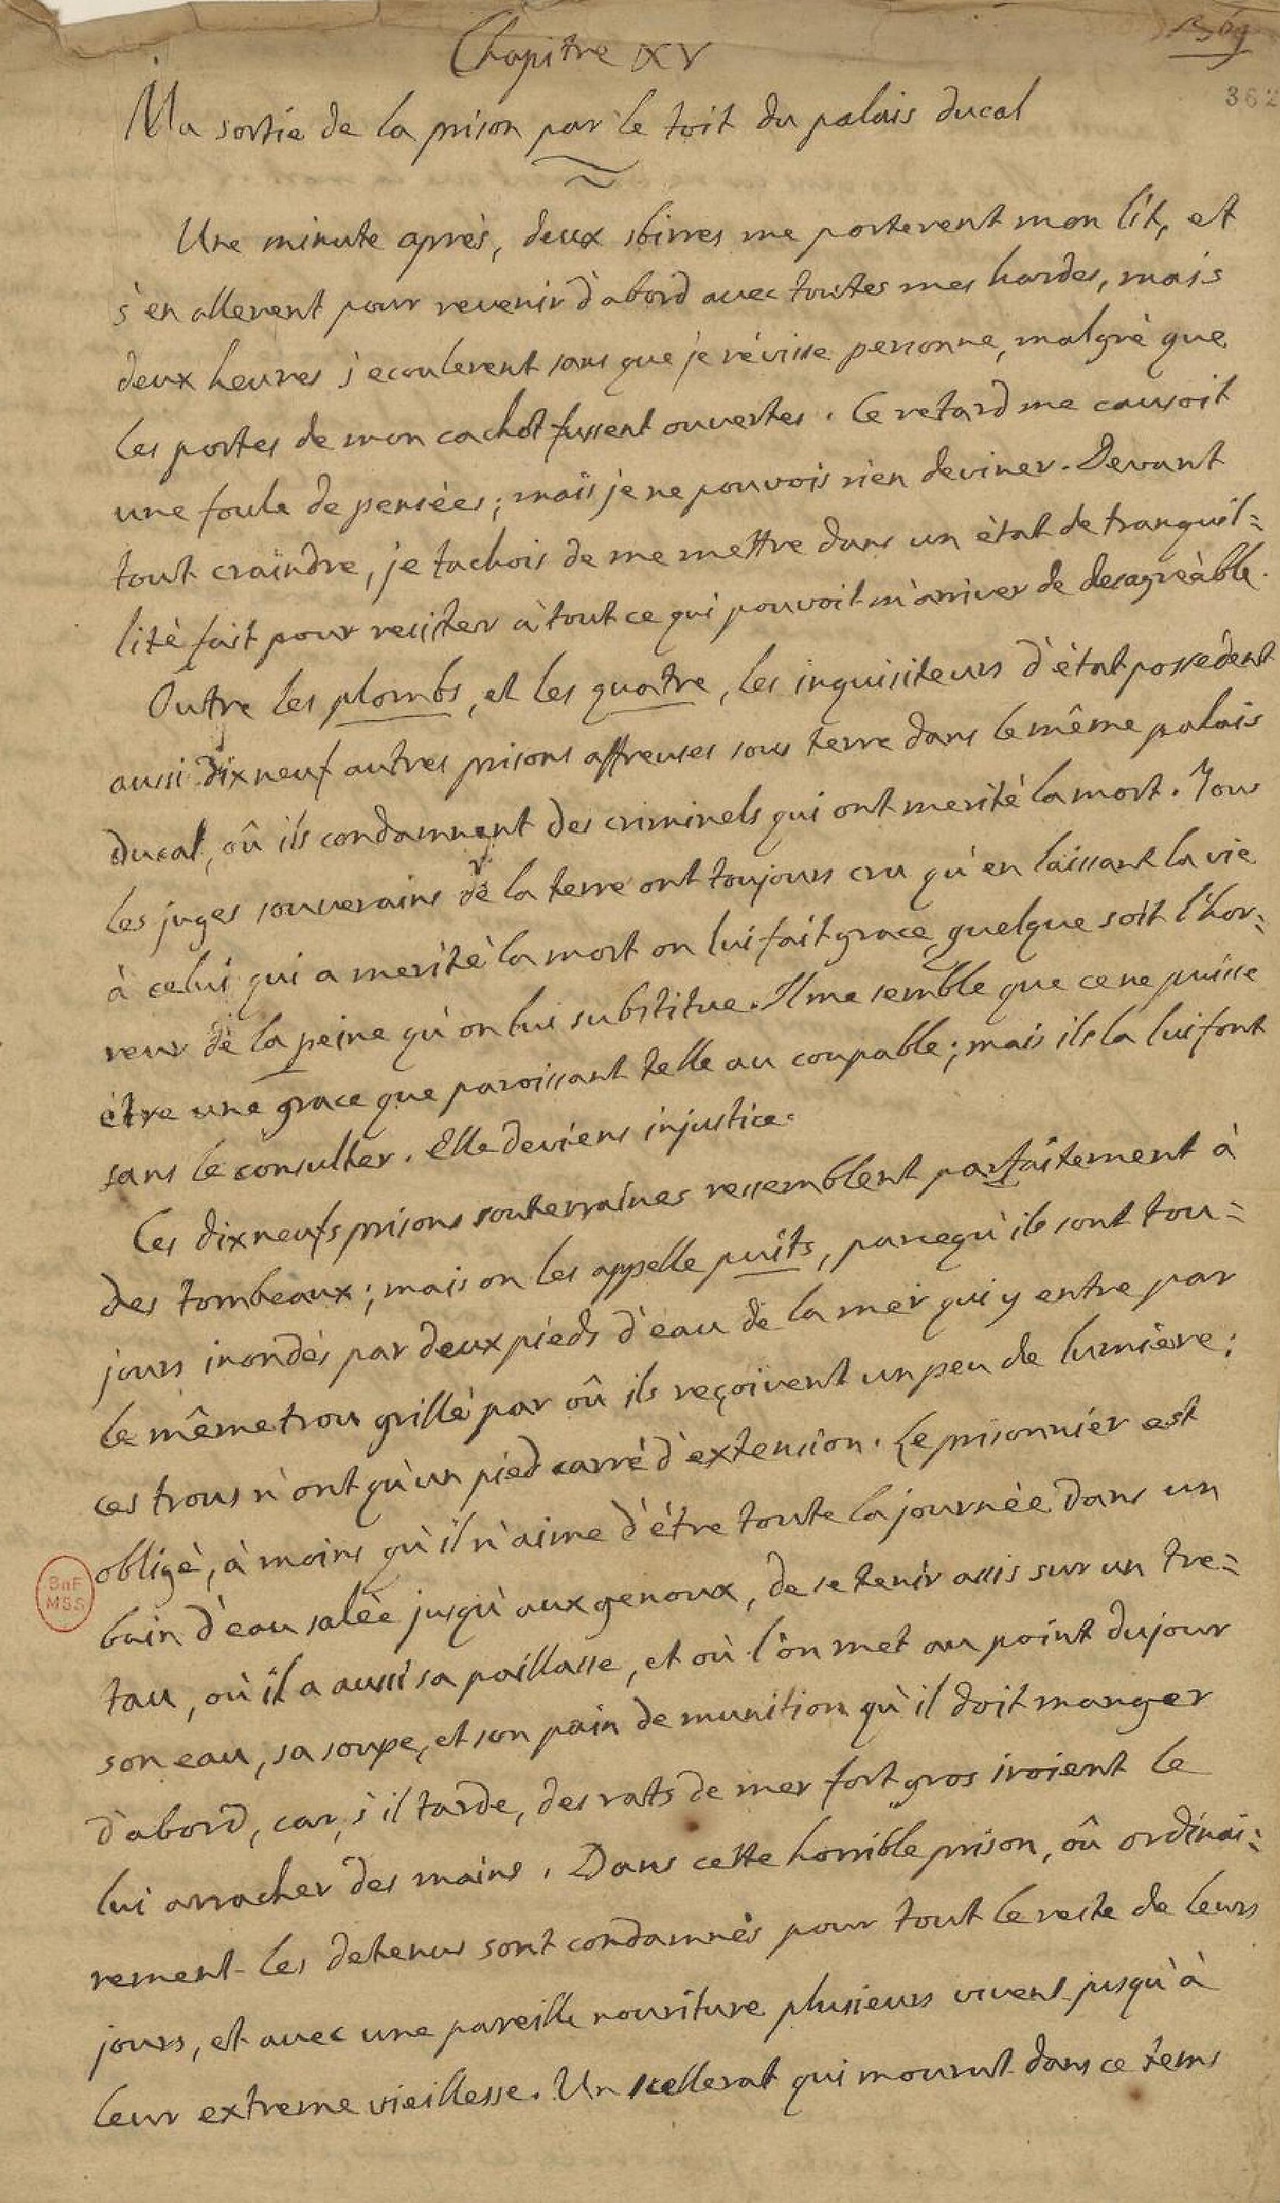 Chapitre XV
362
Ma sortie de la prison par le toit du palais ducal
Une minute après, deux sbirres me porterent mon lit, et
s'en allerent pour revenir d'abord avec toutes mes hardes, mais
deux heures s'ecoulerent sans que je révisse personne, malgrè que
les portes de mon cachot fussent ouvertes. Ce retard me causoit
une foule de pensées; mais je ne pouvois rien deviner. Devant
tout craindre, je tachois de me mettre dans un état de tranquil=
lité fait pour resister à tout ce qui pouvoit m'arriver de desagréable.
Outre les plombs, et les quatre, les inquisiteurs d'état possedent
aussi dixneuf autres prisons affreuses sous terre dans le même palais
ducal, où ils condamnent des criminels qui ont merité la mort. Tous
les juges souverains de la terre ont toujours cru qu'en laissant la vie
à celui qui a merité la mort on lui fait grace quelque soit l'hor=
reur de la peine qu'on lui substitue. Il me semble que ce ne puisse
être une grace que paroissant telle au coupable; mais ils la lui font
sans le consulter. Elle deviens injustice.
Ces dixneufs prisons souterraines ressemblent parfaitement à
des tombeaux; mais on les appelle puits, parcequ'ils sont tou=
jours inondés par deux pieds d'eau de la mer qui y entre par
le même trou grillé par où ils reçoivent un peu de lumière;
ces trous n'ont qu'un pied carré d'extension. Le prisonnier est
obligé, à moins qu'il n'aime d'être toute la journée dans un
bain d'eau salée jusqu'aux genoux, de se tenir assis sur un tre=
tau, où il a aussi sa paillasse, et où l'on met au point du jour
son eau, sa soupe, et son pain de munition qu'il doit manger
d'abord, car, s'il tarde, des rats de mer fort gros iroient le
lui arracher des mains. Dans cette horrible prison, où ordinai=
rement les detenus sont condamnés pour tout le reste de leurs
jours, et avec une pareille nouriture plusieurs vivent jusqu'à
leur extreme vieillesse. Un scellerat qui mourut dans ce tems
BnF
MSS